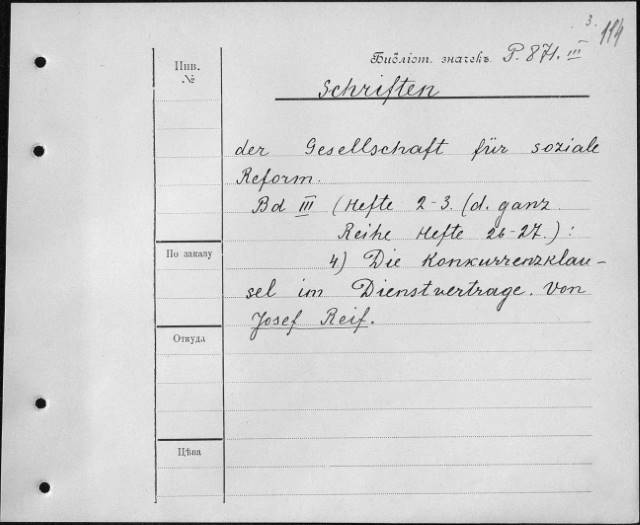 3.
114
Инв.
№
Библіот. значекъ P. 871. III
Schriften
der Gesellschaft für soziale
Reform.
Bd III (Hefte 2-3. (d. ganz.
Reihe Hefte 26-27.) :
4) Die Konkurrenzklau-
sel im Dienstvertrage. Von
Josef Reif.
По заказу
Откуда
Цѣна